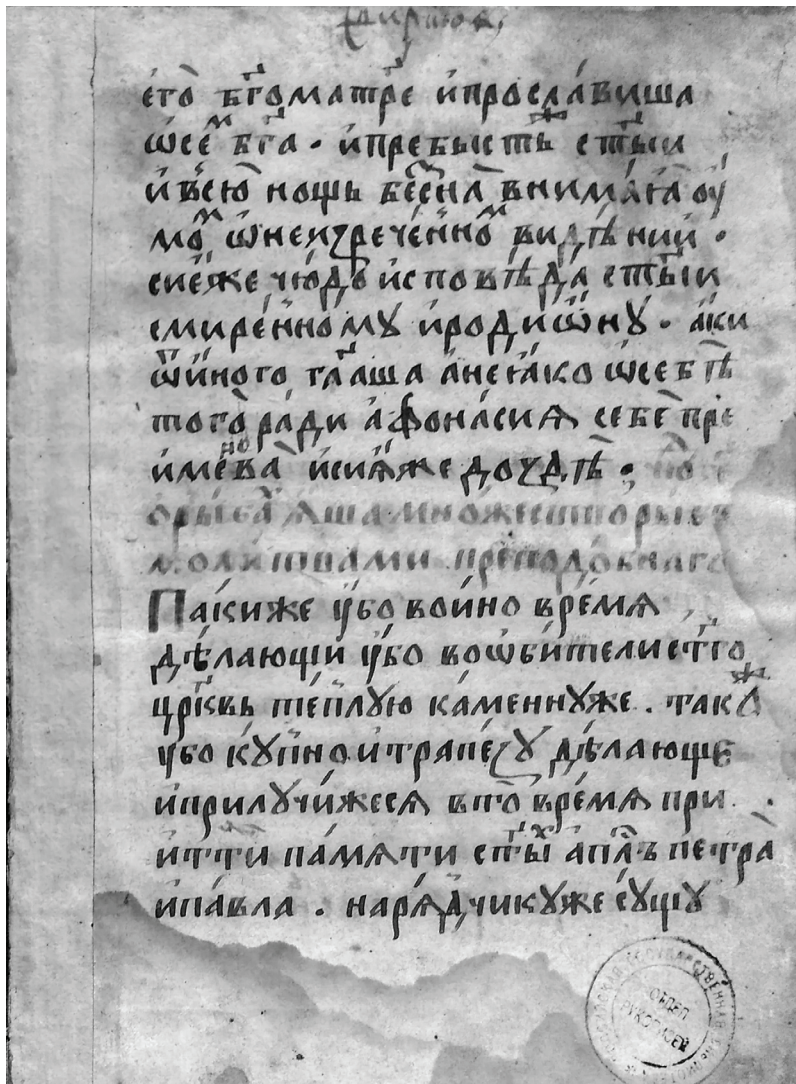 его̀ бг҃ома́тре и҆просла́виша
ѡ҆се́мъ бг҃а . и҆пребы́стже ст҃ы́и
и҆ всю̀ нощь бес сна̀ внима́ꙗ ᲂу҆
мо́мъ ѡ҆неизрече́нномъ видѣ́нии .
сие́же чю́до и҆сповѣ́да ст҃ы́и
смире́нному и҆родиѡ́ну . а҆́ки
ѿи҆но́го гл҃аша а҆не ꙗ҆́ко ѡ҆себѣ̀
того̀ ра́ди а҆фона́сиѧ себѐ пре
и҆менова̀ и҆сиѧ́же доздѣ̀ .
ры́ба ꙗ҆́ша мно́жество ры́бъ
моли́твами преподо́бнаго
Па́киже ᲂу҆́бо во и҆́но вре́мѧ
дѣ́лающи ᲂу҆́бо во ѡ҆би́тели ст҃го
цр҃ковь те́плую ка́меннуже . та́кожде
ᲂу҆́бо ку́пно и҆ трапе́зу дѣ́лающе
и҆прилучи́жесѧ в то̀ вре́мѧ при
иттѝ па́мѧти ст҃ы́хъ а҆пл҃ъ петра̀
и҆па́вла . нарѧ́дчику же сущу
ОТДЕЛ
РУКОПИСЕЙ